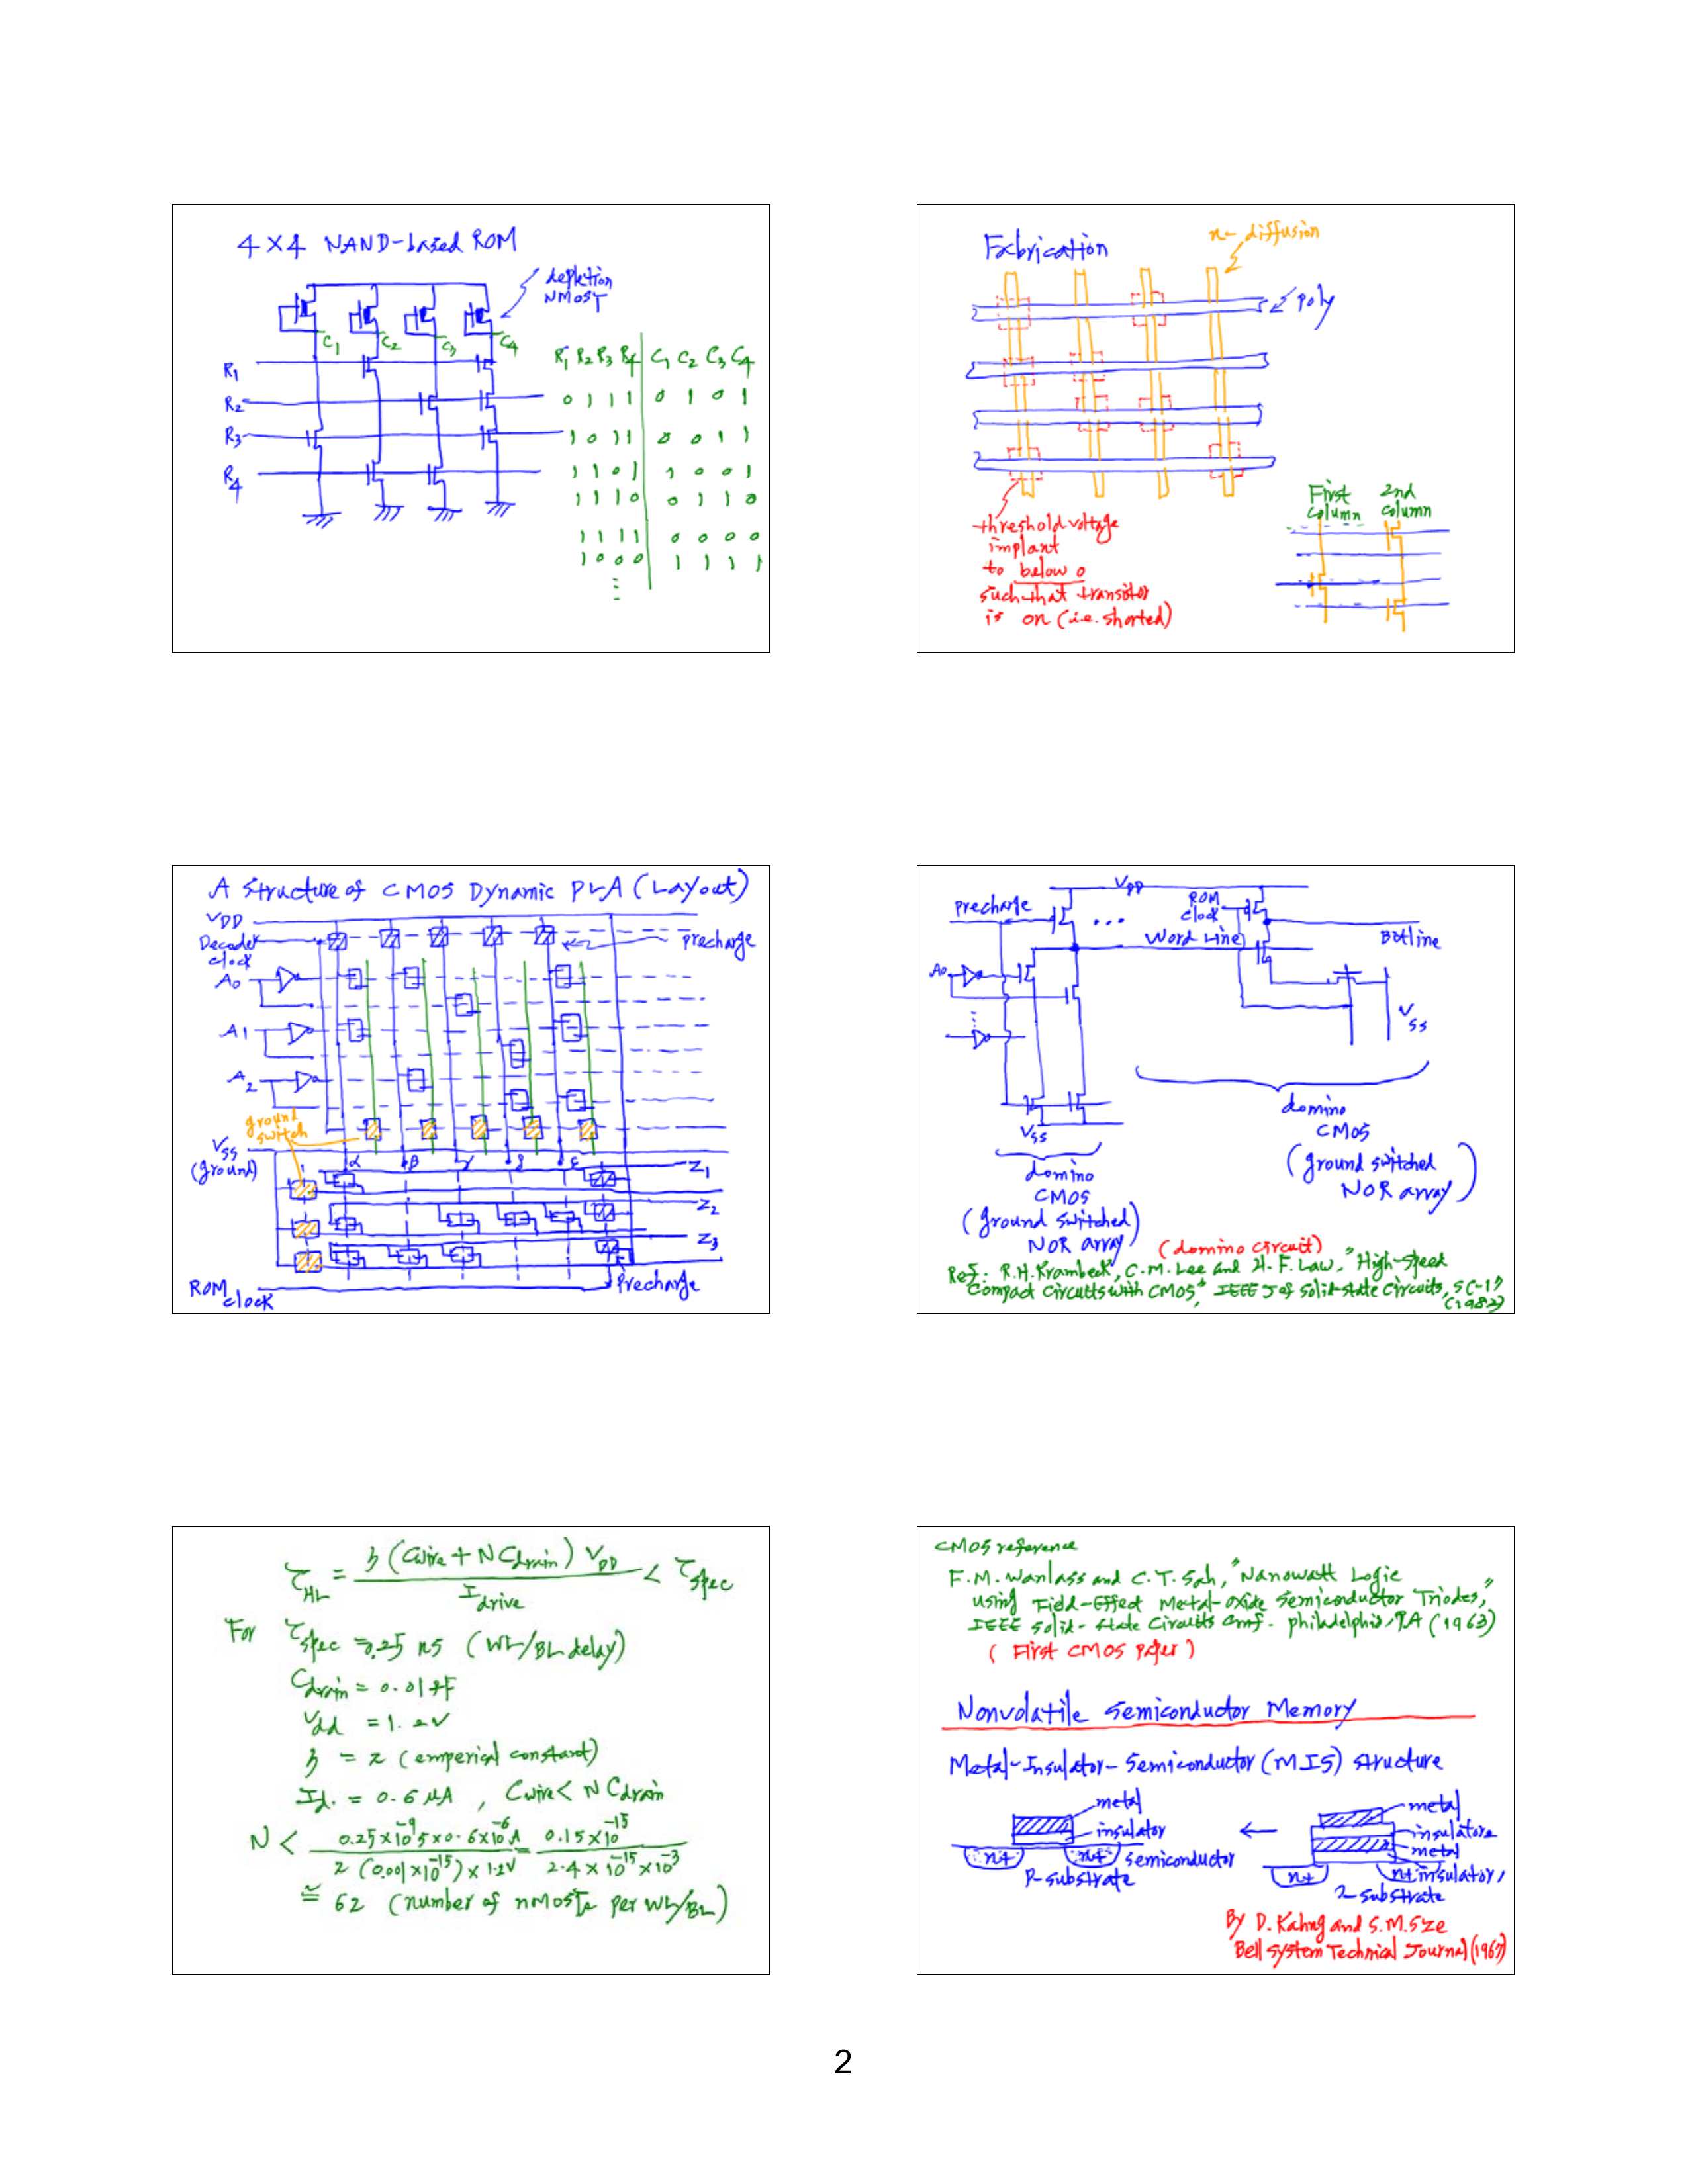 4×4 NAND-based ROM
depletion
NMOST
C1 C2 C3 C4
R1
R2
R3
R4
R1 R2 R3 R4 C1 C2 C3 C4
0 1 1 1 0 1 0 1
1 0 1 1 0 0 1 1
1 1 0 1 1 0 0 1
1 1 1 0 0 1 1 0
1 1 1 1 0 0 0 0
1 0 0 0 1 1 1 1
Fabrication
n-diffusion
poly
threshold voltage
implant
to below 0
such that transistor
is on (i.e. shorted)
First 2nd
column column
A Structure of CMOS Dynamic PLA (Layout)
VDD
Decoder
clock
precharge
A0
A1
A2
ground
switch
VSS
(ground)
α β γ δ ε
Z1
Z2
Z3
ROM
clock
Precharge
VDD
precharge
ROM
clock
...
Word Line
Bitline
A0
VSS
VSS
domino
CMOS
(ground switched
NOR array)
domino
CMOS
(ground switched)
NOR array
(domino circuit)
Ref: R.H. Krambeck, C.M. Lee and H.F. Law, "High-Speed
Compact Circuits with CMOS," IEEE J of Solid-State Circuits, SC-17
(1982)
τHL = 3 (Cwire + N Cdrain) VDD / Idrive < τspec
For τspec = 0.25 ns (WL/BL delay)
Cdrain = 0.01 fF
Vdd = 1.2V
3 = 2 (emperical constant)
Id. = 0.6 μA , Cwire < N Cdrain
N < 0.25×10^-9 s×0.6×10^-6 A / 2 (0.001×10^-15)×1.2V = 0.15×10^-15 / 2.4×10^-15×10^-3
≅ 62 (number of nMOSTs per WL/BL)
CMOS reference
F.M. Wanlass and C.T. Sah, "Nanowatt Logic
using Field-Effect Metal-oxide Semiconductor Triodes,"
IEEE Solid-State Circuits Conf. philadelphia, PA (1963)
(First CMOS Paper)
Nonvolatile Semiconductor Memory
Metal-Insulator-Semiconductor (MIS) structure
metal
insulator
n+ n+ semiconductor
P-substrate
metal
insulator
metal
n+ n+ insulator
substrate
By D. Kahng and S.M. Sze
Bell System Technical Journal (1967)
2